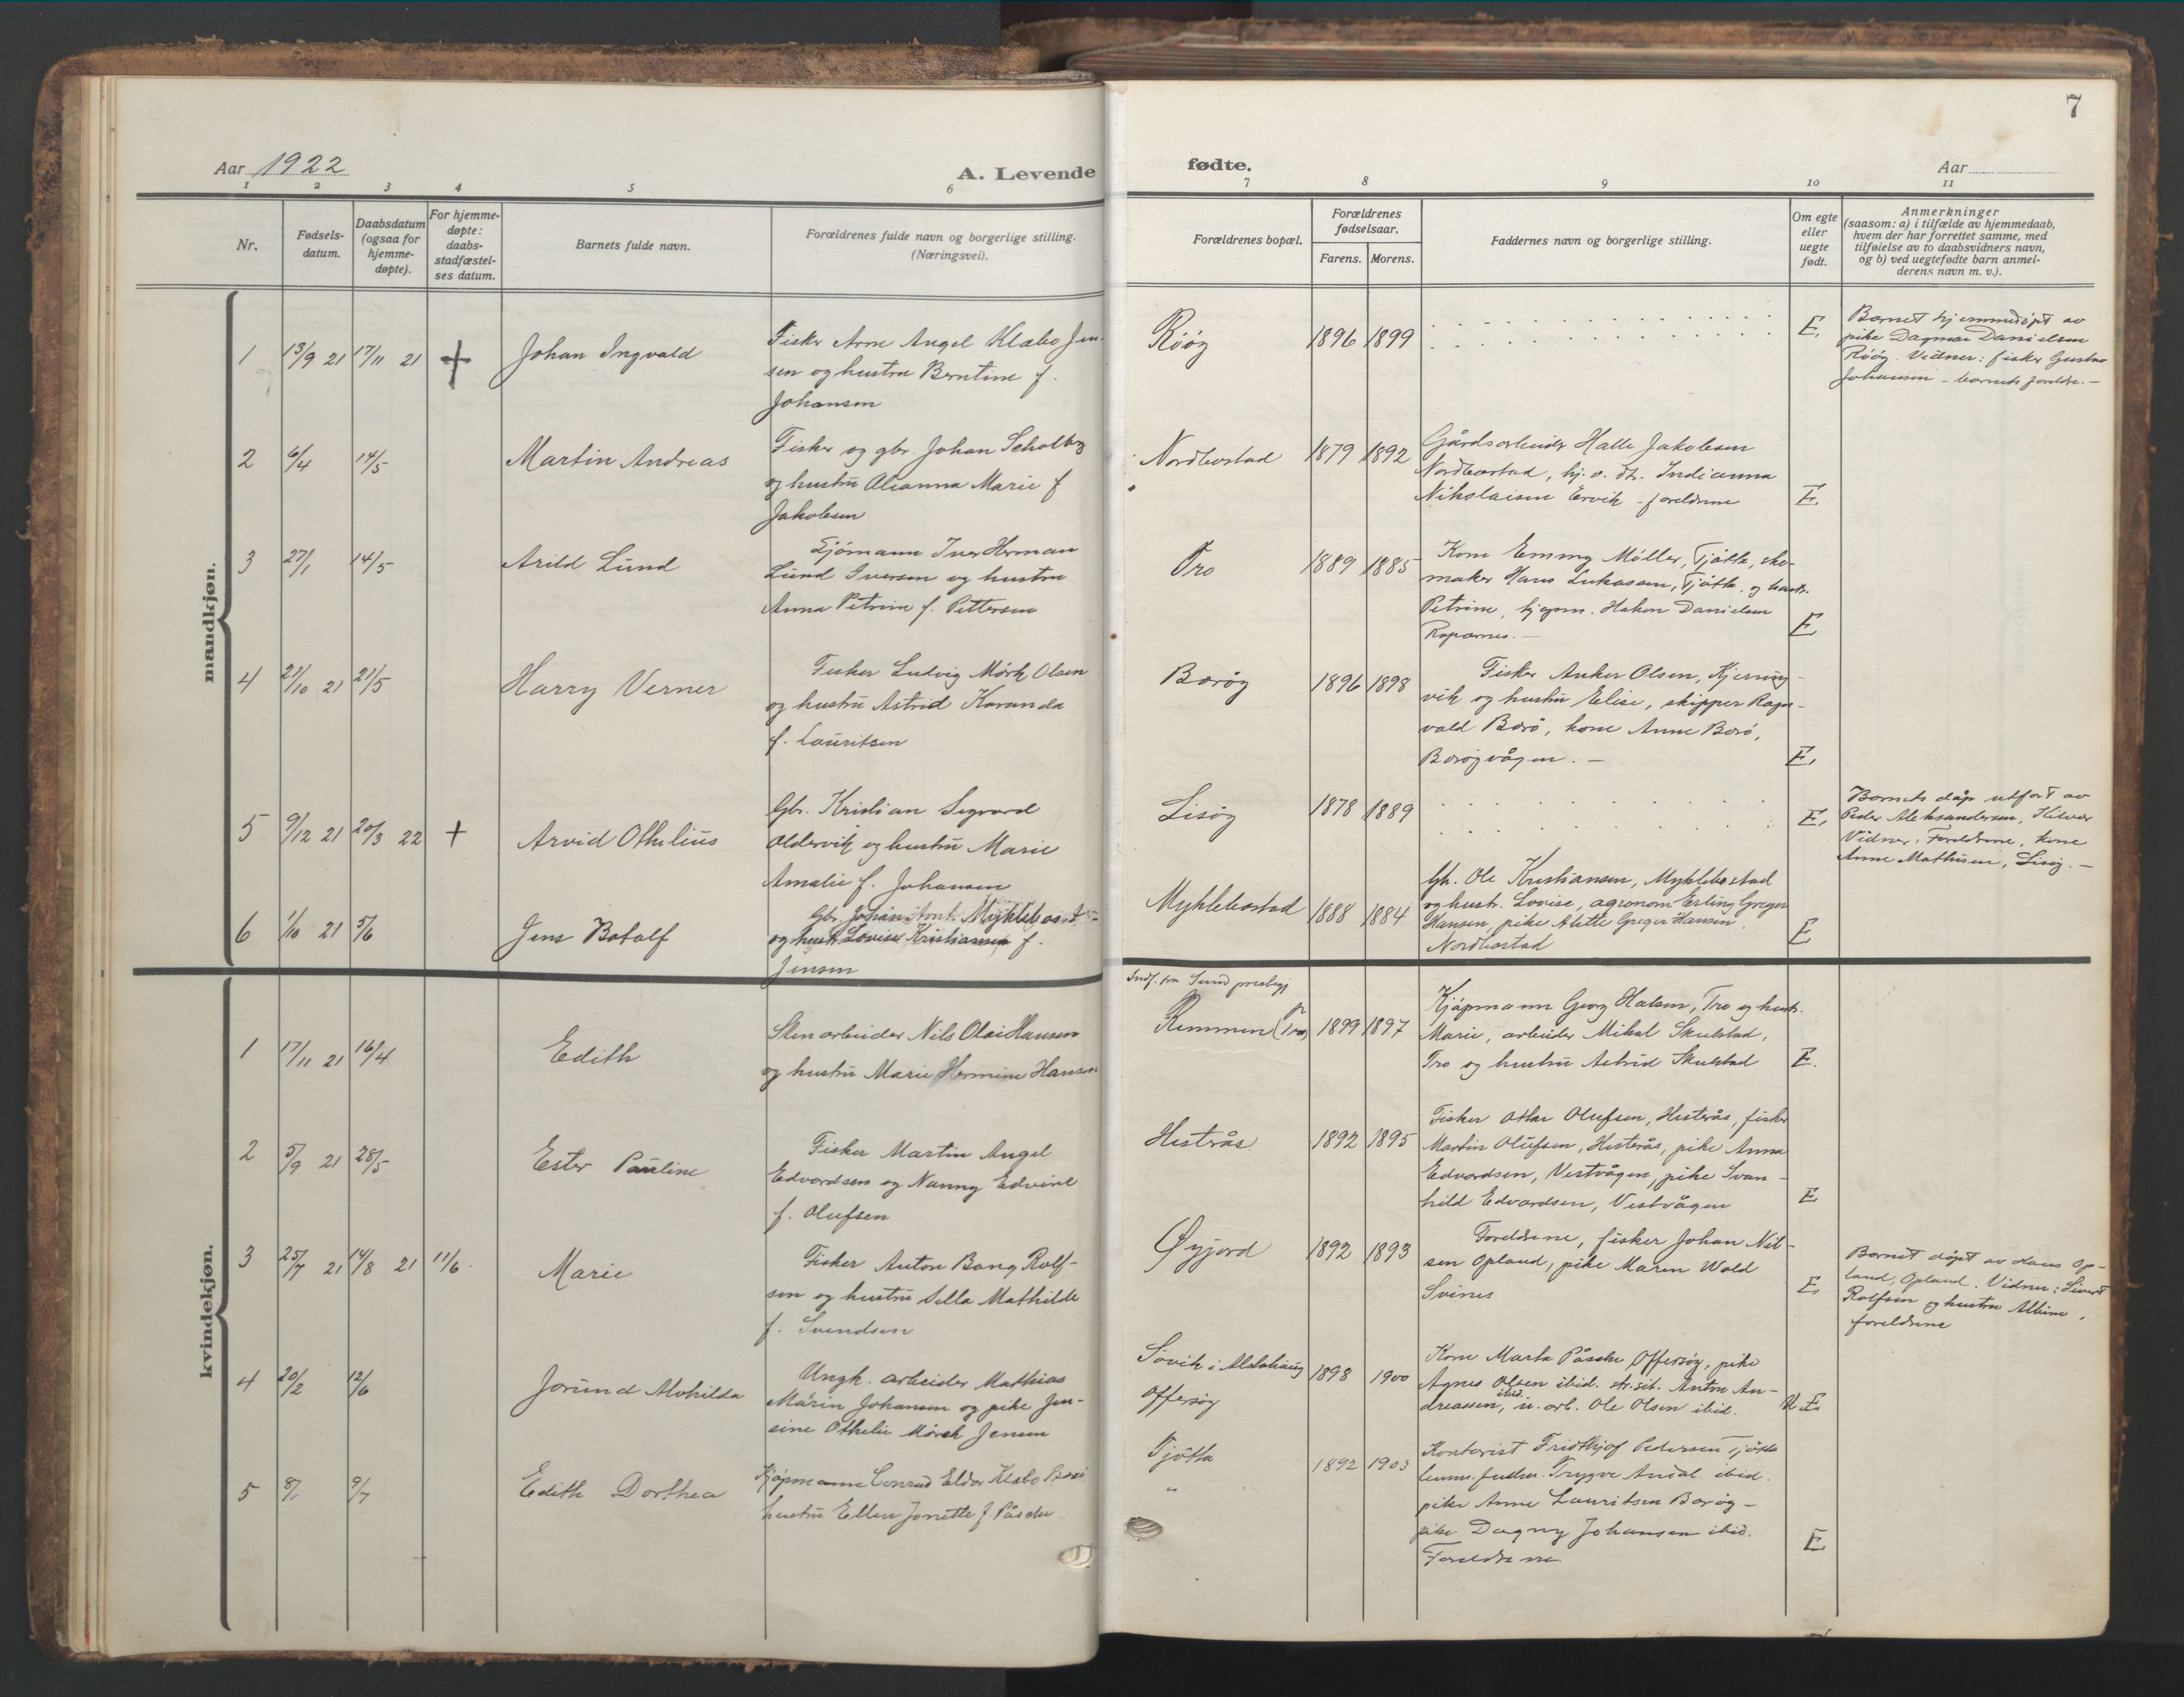 7
Aar 1922
A. Levende
fødte.
Aar
1 2 3 4 5 6
7 8 9 10 11
Nr.
Fødsels-
datum.
Daabsdatum
(ogsaa for
hjemme-
døpte).
For hjemme-
døpte:
daabs-
stadfæstel-
ses datum.
Barnets fulde navn.
Forældrenes fulde navn og borgerlige stilling.
(Næringsvei).
Forældrenes bopæl.
Forældrenes
fødselsaar.
Farens. Morens.
Faddernes navn og borgerlige stilling.
Om egte
eller
uegte
født.
Anmerkninger
(saasom: a) i tilfælde av hjemmedaab,
hvem der har forrettet samme, med
tilføielse av to daabsvidners navn,
og b) ved uegtefødte barn anmel-
derens navn m. v.).
mandkjøn.
1 13/9 21 17/11 21 +
Johan Ingvald
Fisker Arne Angel Klæbo Jen-
sen og hustru Berntine f.
Johansen
Röög
1896 1899
E.
Barnet hjemmedöpt av
pike Dagmar Danielsen
Röög. Vidner: fisker Gustav
Johansen - barnets foreldre. -
2 6/4 14/5
Martin Andreas
Fisker og gbr. Johan Scholberg
og hustrü Aleanna Marie f
Jakobsen
Nordbostad
1879 1892
Gårdsarbeider Halle Jakobsen
Nordbostad, hj. o. dtr. Indianna
Nikolaisen Ervik - foreldrene
E
3 27/1 14/5
Arild Lünd
Sjömann Iver Herman
Lünd Iversen og hustru
Anna Petrine f. Pettersen
Tro
1889 1885
Kone Emmy Möller, Tjötta, sko-
maker Hans Lukassen, Tjötta, og hustr.
Petrine, kjøpm. Hakon Danielsen
E
4 21/10 21 21/5
Harry Verner
Fisker Ludvig Mörk Olsen
og hustrü Astrid Karanda
f. Lauritsen
Boröy
1896 1898
Fisker Anker Olsen, Kjerring-
vik og hustrü Elise, skipper Ragn-
vald Borö, kone Anne Borö,
Boröyvågen. -
E.
5 9/12 21 20/3 22 +
Arvid Othelius
Gbr. Kristian Sigvard
Oldervik og hustrü Marie
Amalie f. Johansen
Lisöy
1878 1889
E.
Barnets dåp utfört av
Peder Aleksandersen,
Vidner: Foreldrene, kone
Anne Mathisen, Lisöy. -
6 1/10 21 5/6
Jens Botolf
Gbr. Johan Myklebost-
og hustr. Lovise Kristiansen f.
Jensen
Myklebostad
1888 1884
Gbr. Ole Kristiansen, Myklebostad
og hustr. Lovise, agronom Erling Greger
Hansen, pike Alette Greger Hansen
Nordbostad
E
kvindekjøn.
1 17/11 21 16/4
Edith
Stenarbeider Nils Olai Hansen
og hustrü Marie Hermine Hansen
Indf. fra Sund prestegj
Remmen (Tro)
1899 1897
Kjöpmann Georg Halsen, Tro og hustr.
Marie, arbeider Mikal Skulstad,
Tro og hustrü Astrid Skulstad
E.
2 5/9 21 28/5
Ester Pauline
Fisker Martin Angel
Edvardsen og Nanny Edvine
f. Olufsen
Hesterås
1892 1895
Fisker Othar Olufsen, Hesterås, fisker
Martin Olüfsen, Hesterås, pike Anna
Edvardsen, Vestvågen, pike Svan-
hild Edvardsen, Vestvågen
E
3 25/7 21 14/8 21 11/6
Marie
Fisker Anton Bang Rolf-
sen og hustrü Sella Mathilde
f. Svendsen
Øyjord
1892 1893
Foreldrene, fisker Johan Nil-
sen Opland, pike Maren Wold
Svines
E
Barnet döpt av Hans Op-
land, Opland. Vidner: Sivert
Rolfsen og hustru Albine,
foreldrene
4 20/2 12/6
Joründ Alvhilda
Ungk. arbeider Mathias
Marin Johansen og pike Jen-
sine Othelie Mörch Jensen
Sövik i Alstahaug
Offersöy
1898 1900
Kone Marta Påsche Offersöy, pike
Agnes Olsen ibid. str.sit. Anton An-
dreassen, ibid. u. arb. Ole Olsen ibid.
U.E.
5 8/1 9/7
Edith Dorthea
Kjöpmann Conrad Eldor Klæbo Borö
hustrü Ellen Jonette f. Påsche
Tjötta
"
1892 1903
Kontorist Fridthjof Pedersen Tjötta
Trygve Andal ibid.
pike Anne Lauritsen Boröy -
pike Dagny Johansen ibid.
Foreldrene
E